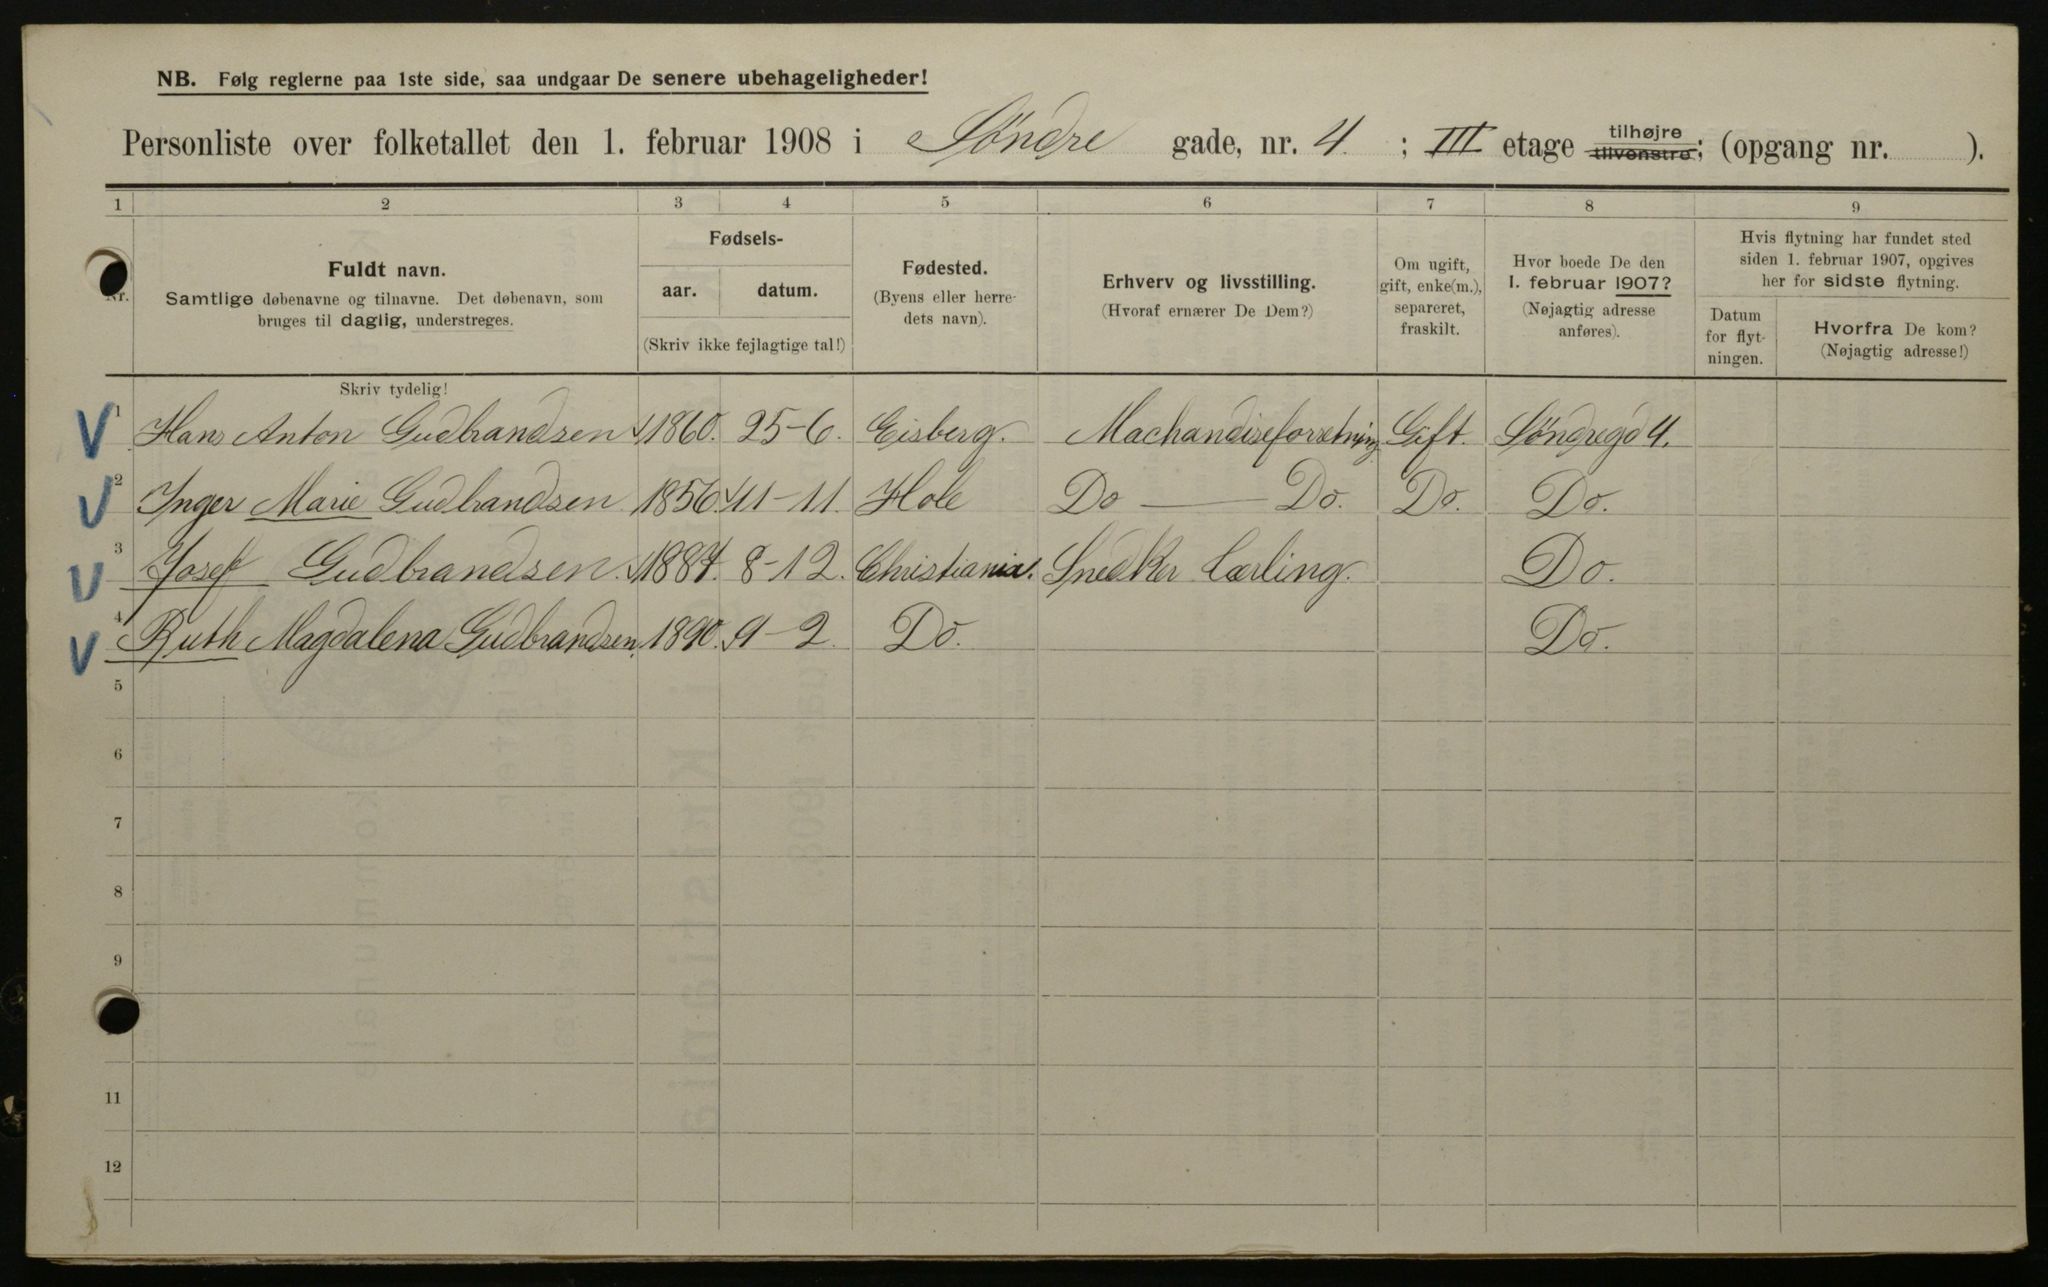 NB. Følg reglerne paa 1ste side, saa undgaar De senere ubehageligheder!
Personliste over folketallet den 1. februar 1908 i Søndre gade, nr. 4 ; III etage tilhøjre tilvenstre; (opgang nr. ).
1 2 3 4 5 6 7 8 9
Nr. Fuldt navn. Samtlige døbenavne og tilnavne. Det døbenavn, som bruges til daglig, understreges.
Fødsels- aar. datum. (Skriv ikke fejlagtige tal!)
Fødested. (Byens eller herredets navn).
Erhverv og livsstilling. (Hvoraf ernærer De Dem?)
Om ugift, gift, enke(m.), separeret, fraskilt.
Hvor boede De den 1. februar 1907? (Nøjagtig adresse anføres).
Hvis flytning har fundet sted siden 1. februar 1907, opgives her for sidste flytning.
Datum for flytningen. Hvorfra De kom? (Nøjagtig adresse!)
Skriv tydelig!
1 Hans Anton Gudbrandsen 1860. 25-6. Eisberg. Machandiseforretning Gift. Søndregd 4.
2 Inger Marie Gudbrandsen 1856. 11-11. Hole Do — Do. Do. Do.
3 Josef Gudbrandsen. 1887. 8-12. Christiania. Snedker Lærling. Do.
4 Ruth Magdalena Gudbrandsen. 1890. 9-2. Do. Do.
5
6
7
8
9
11
12